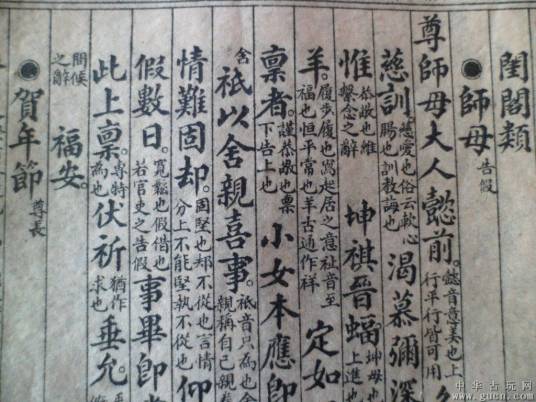 閨閣類
●師母 告假
尊師母大人懿前。懿音意美也上行平行皆可用
慈訓。慈愛也俗云軟心腸也訓教誨也 渴慕彌深
惟 恭敬也維繫念之辭 坤祺晉蝠 坤母也上進也
羊。履步履也寫起居之意祉音至福也恒平常也羊古通作祥 定如
稟者。謹恭敬也稟下告上也 小女本應即
舍 祗以舍親喜事。祗音只為也舍親稱自己親
情難固却。固堅也却不從也言情分上不能堅執不從也 仰
假數日。寬鬆也假借也若官吏之告假 事畢即
此上稟。專特為也 伏祈 猶作求也 垂允。
問候之辭 福安。
●賀年節 尊長
中华古玩网
www.gucn.com